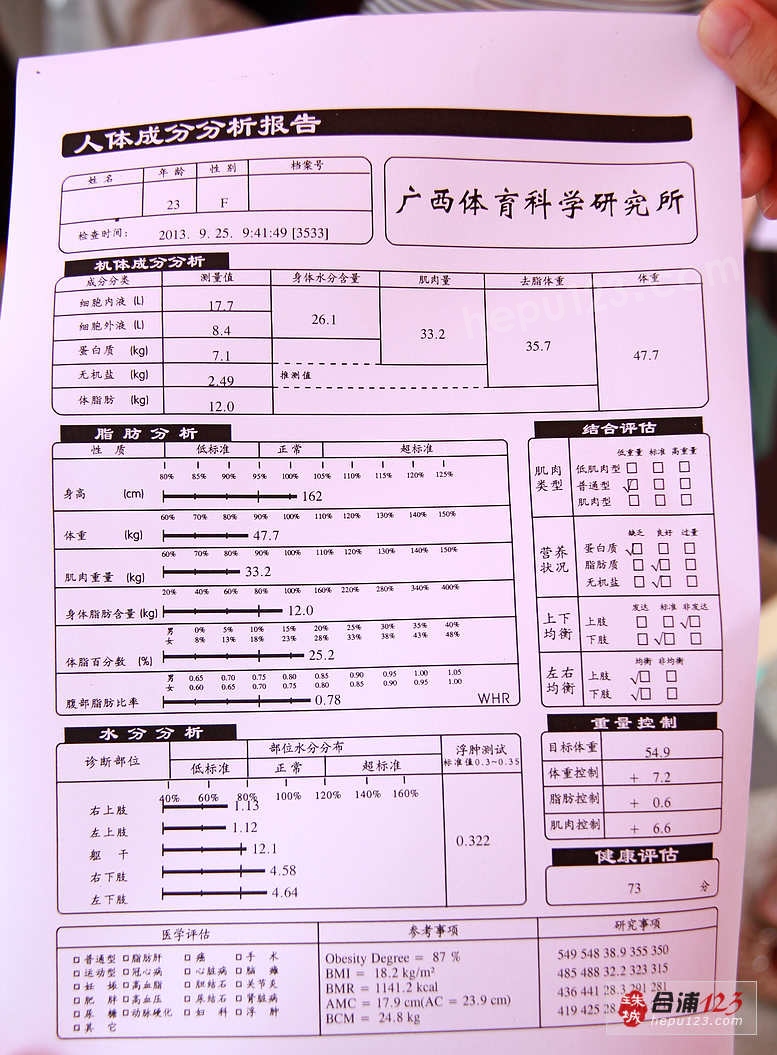 人体成分分析报告
姓名 年龄 性别 档案号
23 F
检查时间: 2013. 9. 25. 9:41:49 [3533]
广西体育科学研究所
机体成分分析
成分分类 测量值 身体水分含量 肌肉量 去脂体重 体重
细胞内液 (L) 17.7
细胞外液 (L) 8.4
26.1
33.2
35.7
47.7
蛋白质 (kg) 7.1
无机盐 (kg) 2.49 推测值
体脂肪 (kg) 12.0
脂肪分析
性质 低标准 正常 超标准
80% 85% 90% 95% 100% 105% 110% 115% 120% 125%
身高 (cm) 162
60% 70% 80% 90% 100% 110% 120% 130% 140% 150%
体重 (kg) 47.7
60% 70% 80% 90% 100% 110% 120% 130% 140% 150%
肌肉重量 (kg) 33.2
20% 40% 60% 80% 100% 160% 220% 280% 340% 400%
身体脂肪含量 (kg) 12.0
男 0% 5% 10% 15% 20% 25% 30% 35% 40%
女 8% 13% 18% 23% 28% 33% 38% 43% 48%
体脂百分数 (%) 25.2
男 0.65 0.70 0.75 0.80 0.85 0.90 0.95 1.00 1.05
女 0.60 0.65 0.70 0.75 0.80 0.85 0.90 0.95 1.00
腹部脂肪比率 0.78 WHR
结合评估
肌肉类型
低重量 标准 高重量
低肌肉型
普通型 √
肌肉型
营养状况
缺乏 良好 过量
蛋白质 √
脂肪质 √
无机盐 √
上下均衡
发达 标准 非发达
上肢 √
下肢 √
左右均衡
均衡 非均衡
上肢 √
下肢 √
水分分析
诊断部位 部位水分分布 浮肿测试
低标准 正常 超标准 标准值0.3~0.35
40% 60% 80% 100% 120% 140% 160%
右上肢 1.13
左上肢 1.12
躯干 12.1
右下肢 4.58
左下肢 4.64
0.322
重量控制
目标体重 54.9
体重控制 + 7.2
脂肪控制 + 0.6
肌肉控制 + 6.6
健康评估
73 分
医学评估 参考事项 研究事项
普通型 脂肪肝 癌 手术
运动型 冠心病 心脏病 脑瘫
妊娠 高血脂 胆结石 关节炎
肥胖 高血压 尿结石 肾脏病
尿糖 动脉硬化 妇科 浮肿
其它
Obesity Degree = 87 %
BMI = 18.2 kg/m²
BMR = 1141.2 kcal
AMC = 17.9 cm(AC = 23.9 cm)
BCM = 24.8 kg
549 548 38.9 355 350
485 488 32.2 323 315
436 441 28.3 291 281
419 425 28
hepu123.com
珠城 合浦123
hepu123.com